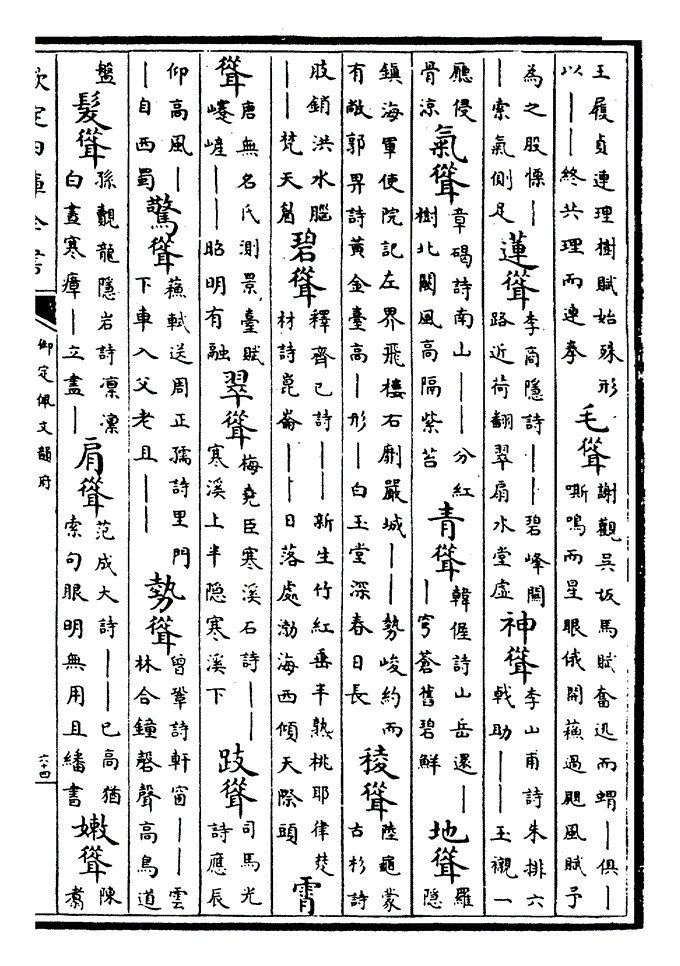 王履貞連理樹賦始殊形以——終共理而連拳 毛聳 謝觀吳坂馬賦奮迅而蝟—俱—嘶鳴而星眼俄開蘇過颶風賦予
為之股慄——索氣側足 蓮聳 李商隱詩——碧峰闗路近荷翻翠扇水堂虛 神聳 李山甫詩朱排六㦸助——玉襯一
廳侵骨涼 氣聳 章碣詩南山——分紅樹北闕風高隔紫苔 青聳 韓偓詩山岳還——穹蒼舊碧鮮 地聳 羅隱
鎮海軍使院記左界飛樓右劘嚴城——勢峻約而有敵郭畀詩黃金臺高—形—白玉堂深春日長 稜聳 陸龜蒙古杉詩
肢銷洪水腦——梵天眉 碧聳 釋齊己詩——新生竹紅垂半熟桃耶律楚材詩崑崙——日落處渤海西傾天際頭 霄
聳 唐無名氏測景臺賦嶁嵼——昭明有融 翠聳 梅堯臣寒溪石詩——寒溪上半隐寒溪下 跂聳 司馬光詩應辰
仰高風——自西蜀 驚聳 蘇軾送周正孺詩里門下車入父老且—— 勢聳 曾鞏詩軒窗——雲林合鐘磬聲高鳥道
盤 髮聳 孫覿龍隱岩詩凛凛白晝寒瘴—立盡— 肩聳 范成大詩——已高猶索句眼明無用且繙書 嫩聳 陳翥
欽定四庫全書
御定佩文韻府
六十四